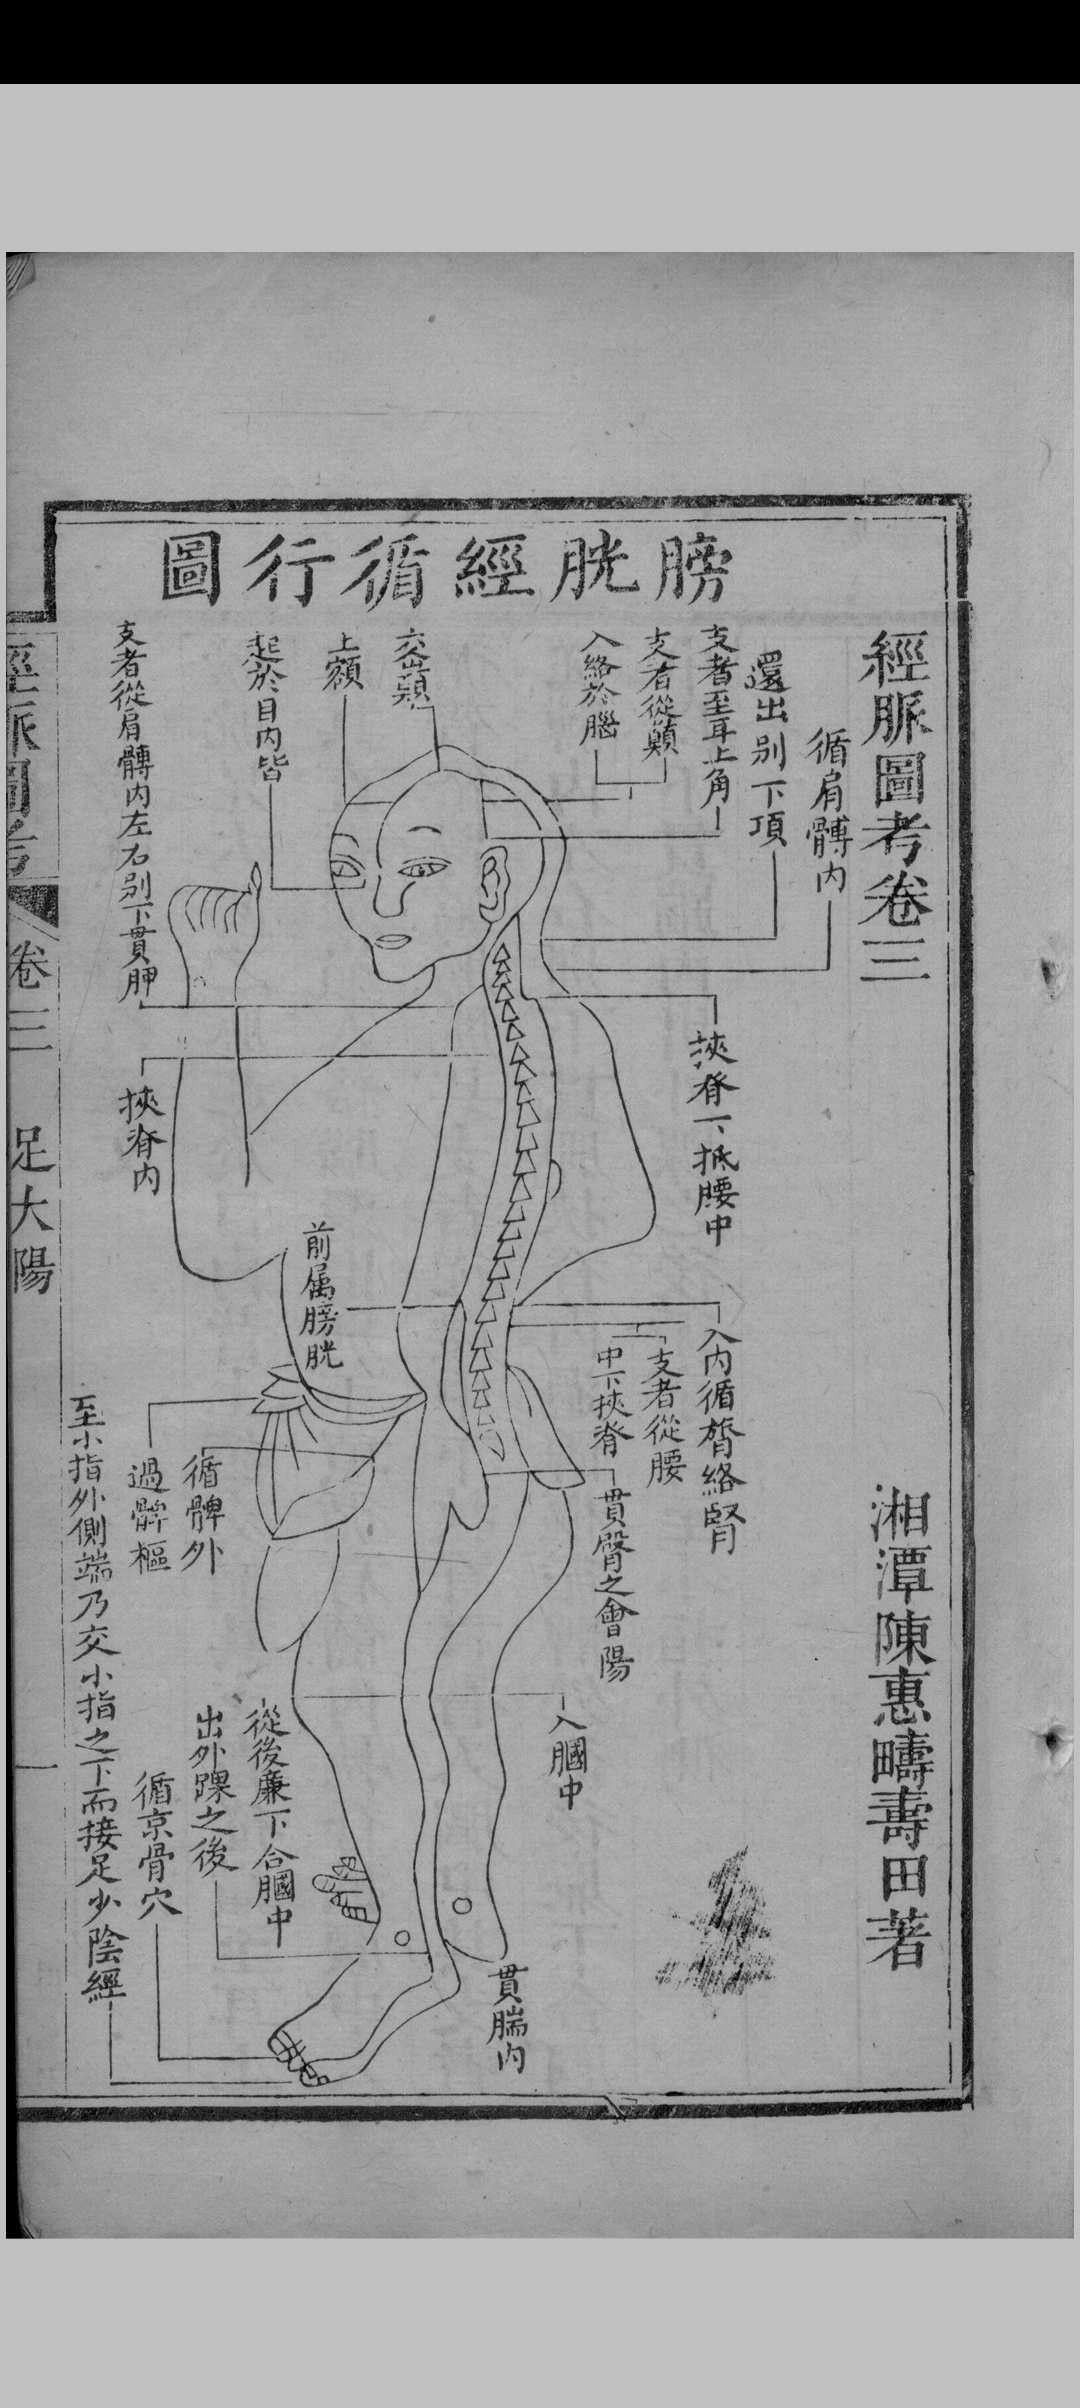 經脈圖考卷三
湘潭陳惠疇壽田著
膀胱經循行圖
循肩髆內
還出别下項
支者至耳上角
支者從顛
入絡於腦
交巔
上額
起於目內眥
支者從肩髆內左右别下貫胛
挾脊內
挾脊下抵腰中
入內循膂絡腎
支者從腰
中下挾脊
貫臀之會陽
前属膀胱
循髀外
過髀樞
入膕中
從後廉下合膕中
出外踝之後
循京骨穴
至小指外側端乃交小指之下而接足少陰經
貫腨內
經脈圖考
卷三
足太陽
一